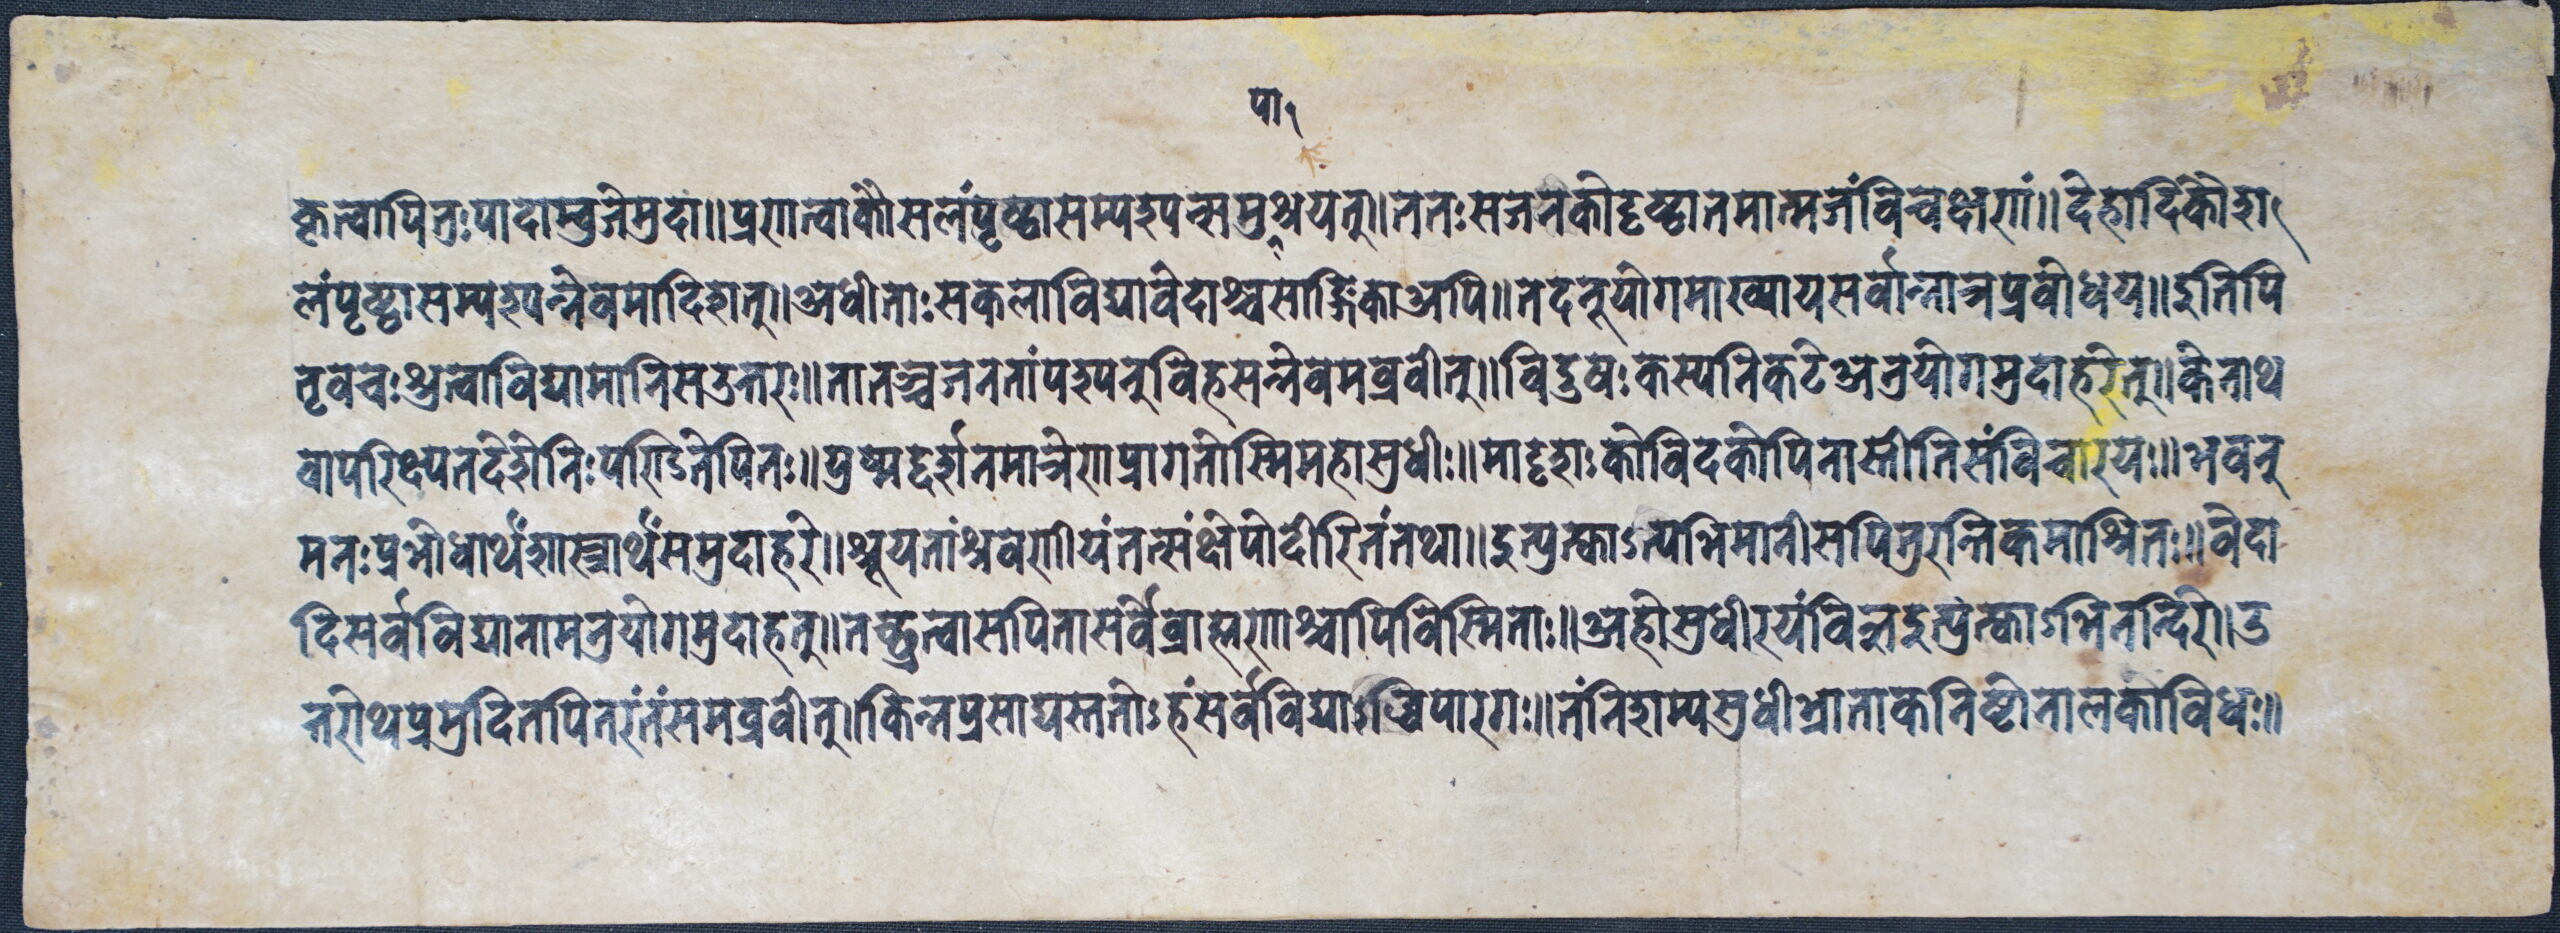 पा१
कृत्वापितुःपादाम्बुजेमुदा॥प्रणत्वाकौसलंपृष्ट्वासम्पश्यन्समुपाश्रयत्॥ततःसजनकोदृष्ट्वातमात्मजंविचक्षणं॥देहादिकौश
लंपृष्ट्वासम्पश्यन्नेवमादिशत्॥अधीताःसकलाविद्यावेदाश्चसाङ्गिकाअपि॥तदनूयोगमाख्यायसर्वान्तात्रप्रवोधय॥इतिपि
तृवचःश्रुत्वाविद्यामानिसउत्तरः॥तातञ्चजनतांपश्यनुविहसन्नेवमव्रवीत्॥विदुषःकस्यनिकटेअनुयोगमुदाहरेत्॥केनाथ
वापरिक्ष्यतदेशेतिःपण्डितेपितः॥युष्मद्दर्शनमात्रेणप्रागतोस्मिमहासुधीः॥मादृशःकोविदकोपिनास्तीतिसंविचारयः॥भवतु
मनःप्रभोधार्थंशास्त्रार्थंसमुदाहरे॥श्रूयतांश्रवणीयंतत्संक्षेपोदीरितंतथा॥इत्युत्काऽत्यभिमानीसपितुरन्तिकमाश्रितः॥वेदा
दिसर्वविद्यानामनुयोगमुदाहृत्॥तच्छ्रुत्वासपितासर्वेब्राह्मणाश्चापिविस्मिताः॥अहोसुधीरयंविज्ञइत्युत्काऽभिनन्दिरे॥उ
त्तरोथप्रमुदितपितरंतंसमव्रवीत्॥किन्नप्रसाद्यस्ततोऽहंसर्वविद्याऽब्धिपारगः॥तंनिशम्यसुधीभ्राताकनिष्टोनालकोविधः॥